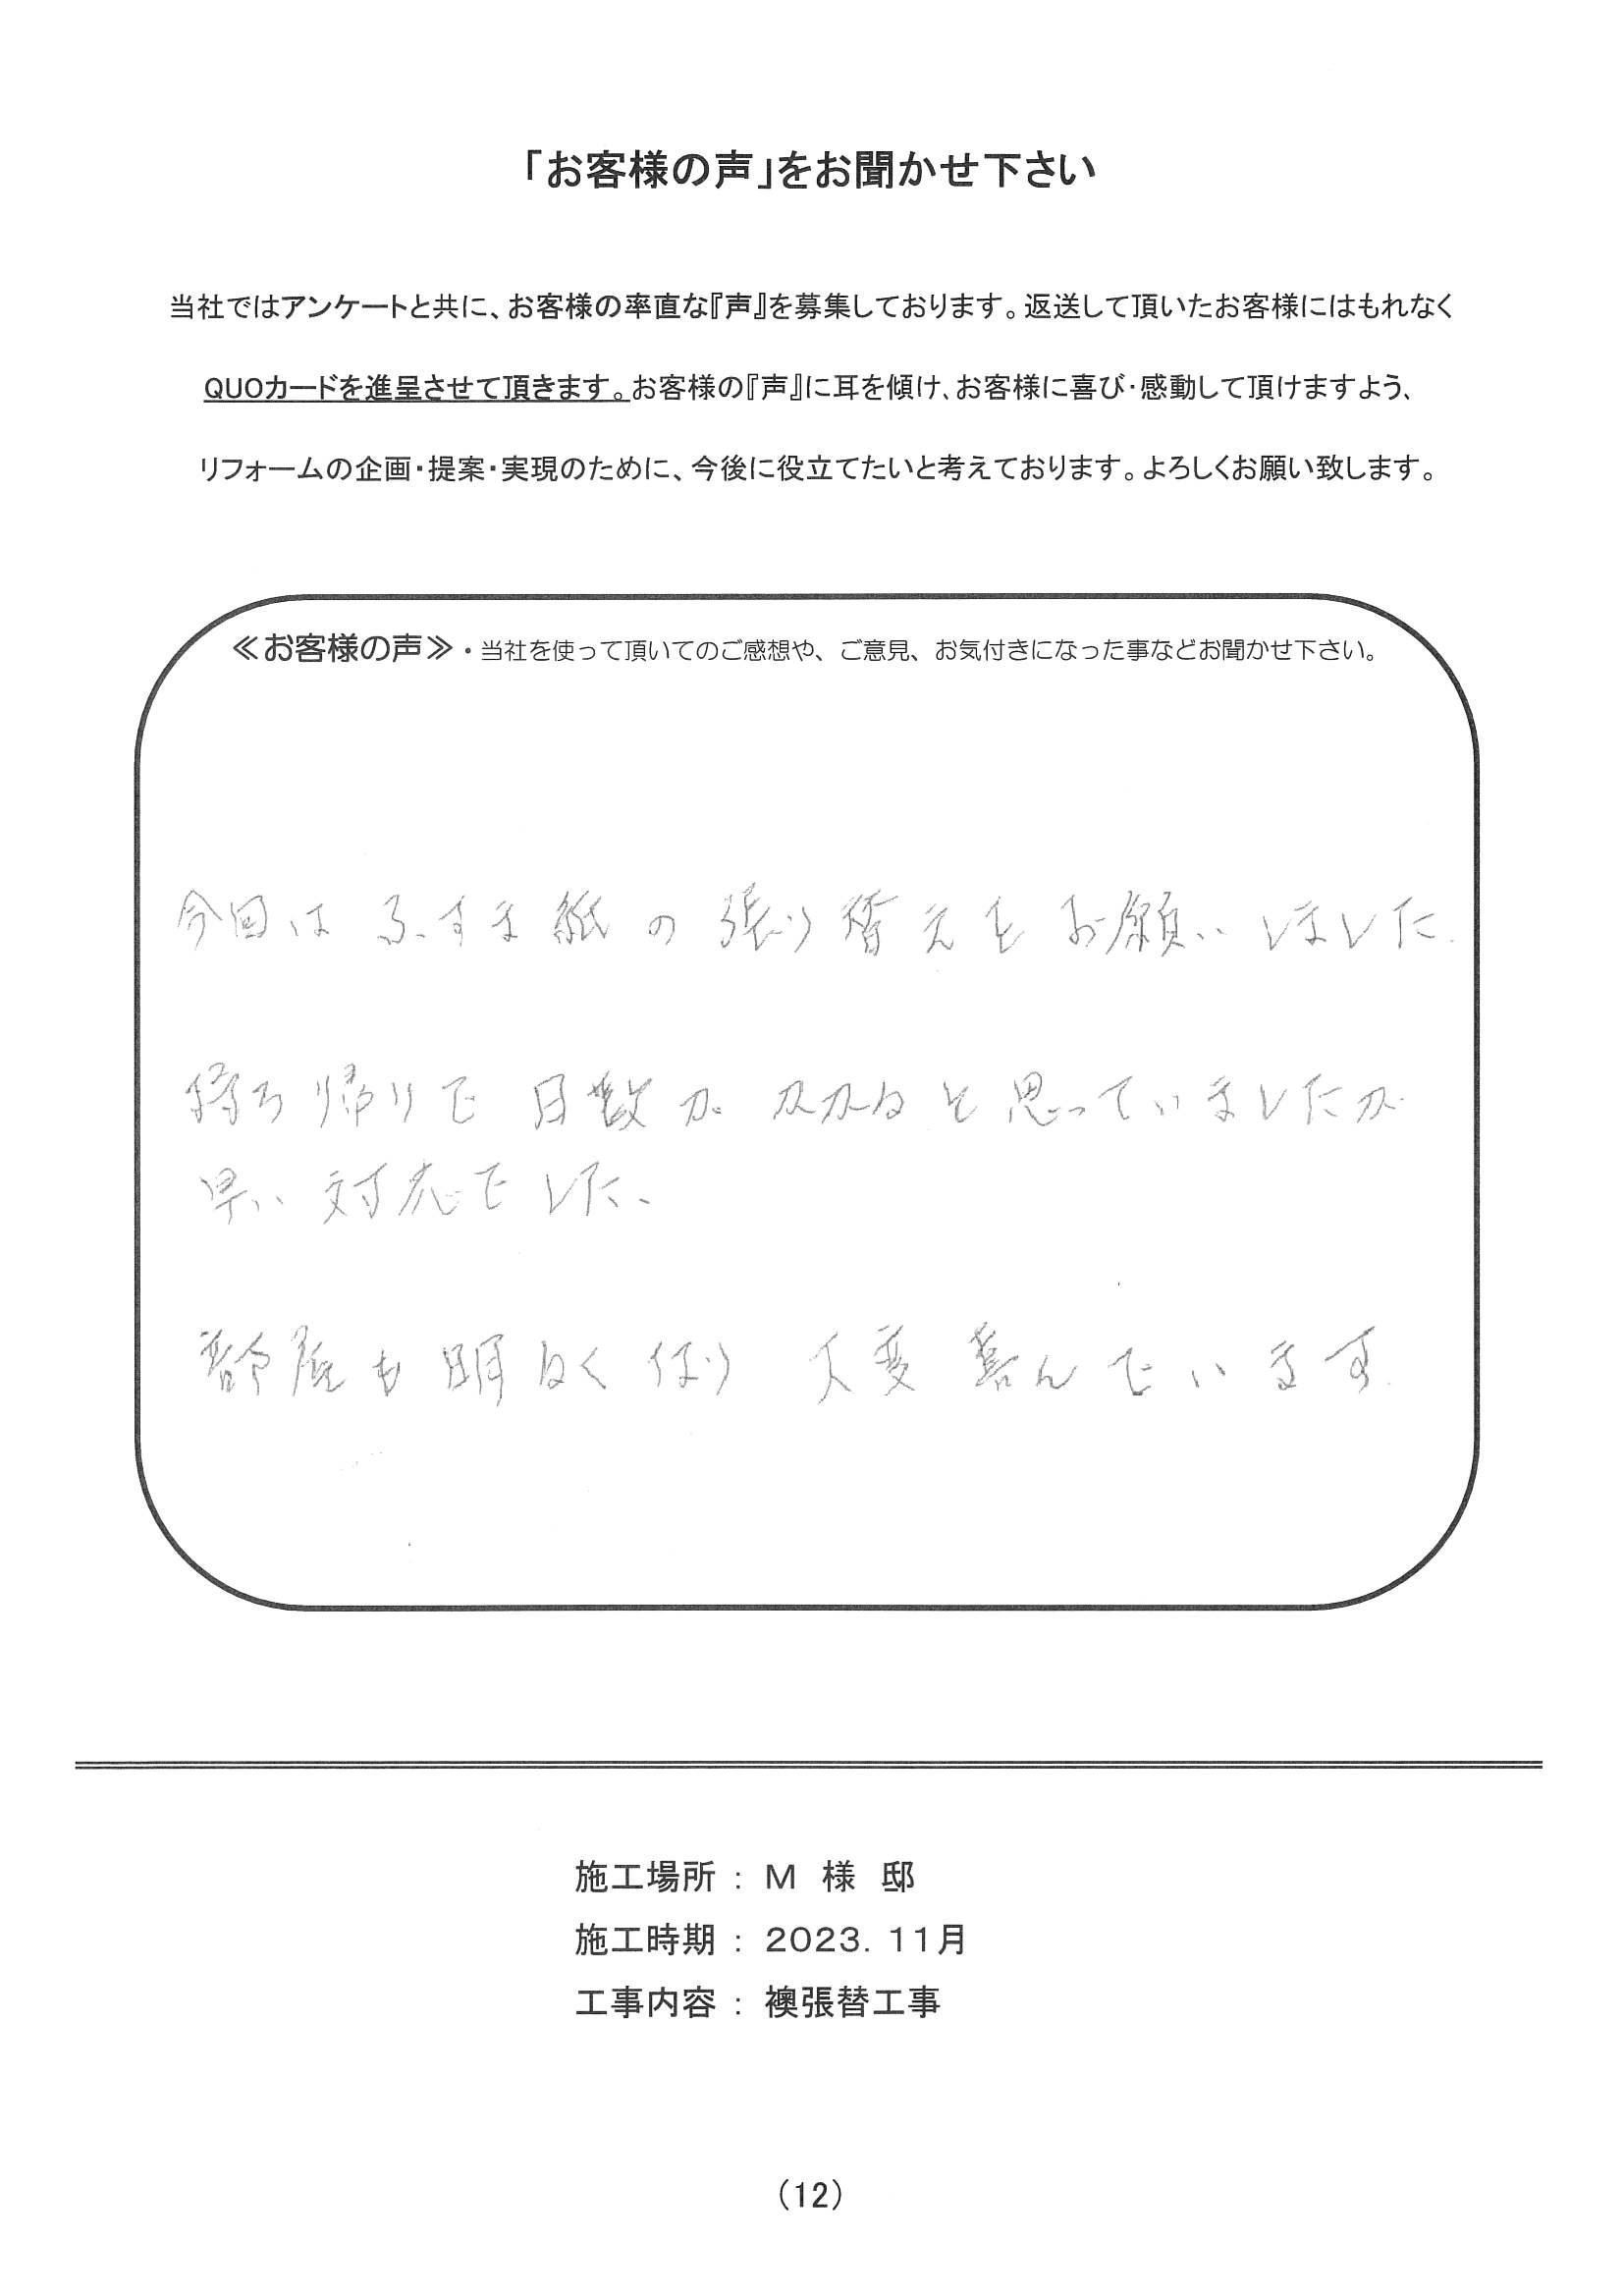 「お客様の声」をお聞かせ下さい
当社ではアンケートと共に、お客様の率直な『声』を募集しております。返送して頂いたお客様にはもれなく
QUOカードを進呈させて頂きます。お客様の『声』に耳を傾け、お客様に喜び・感動して頂けますよう、
リフォームの企画・提案・実現のために、今後に役立てたいと考えております。よろしくお願い致します。
≪お客様の声≫・当社を使って頂いてのご感想や、ご意見、お気付きになった事などお聞かせ下さい。
今回は ふすま紙の 張り替えを お願い しました.
持ち帰りで 日数が かかると思っていましたが
早い 対応でした、
部屋も明るくなり 大変 喜んでいます.
施工場所 : M 様 邸
施工時期 : 2023. 11月
工事内容 : 襖張替工事
(12)